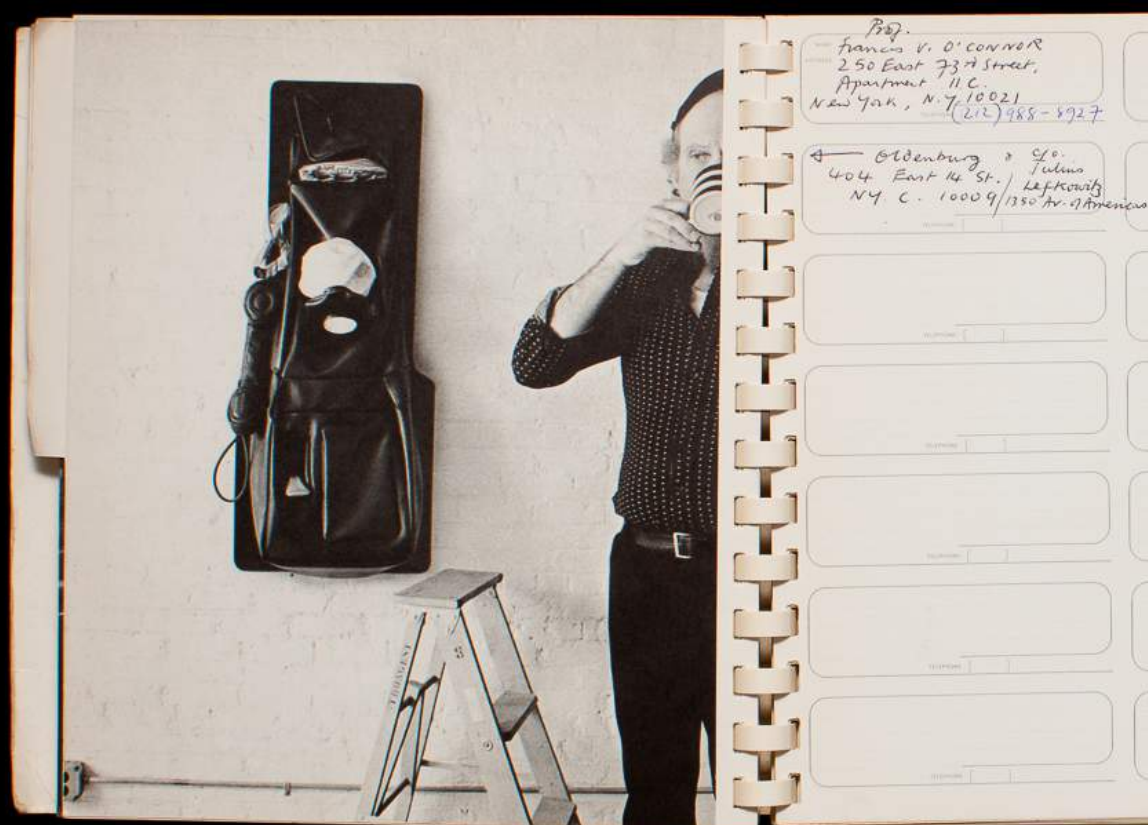 Prof.
Francis V. O'CONNOR
250 East 73rd Street,
Apartment 11 C.
New York, N.Y. 10021
(212) 988-8927
← Oldenburg c/o.
404 East 14 St. / Julius
NY. C. 10009 / Lefkowitz
1350 Av. of Americas
TELEPHONE
TELEPHONE
TELEPHONE
TELEPHONE
TELEPHONE
TELEPHONE